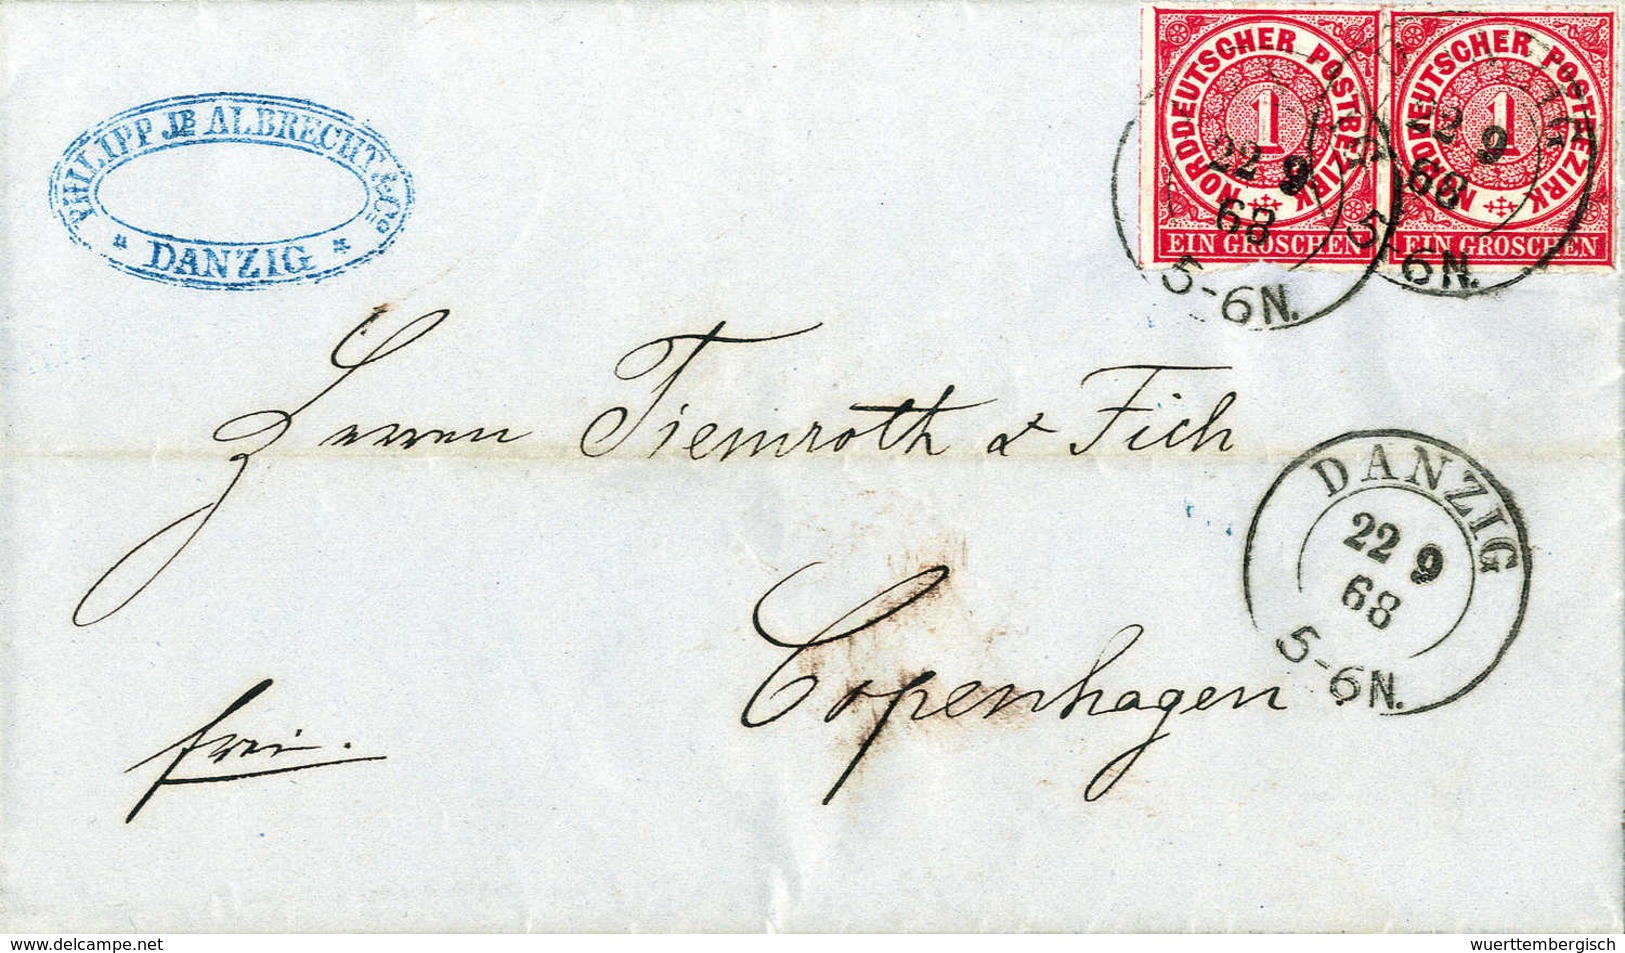 PHILIPP JB ALBRECHT & Co
DANZIG
NORDDEUTSCHER POSTBEZIRK
1
EIN GROSCHEN
NORDDEUTSCHER POSTBEZIRK
1
EIN GROSCHEN
22 9
68
5-6N.
22 9
68
5-6N.
Herren Tiemroth & Fich
DANZIG
22 9
68
5-6N.
Copenhagen
frei.
www.delcampe.net
wuerttembergisch